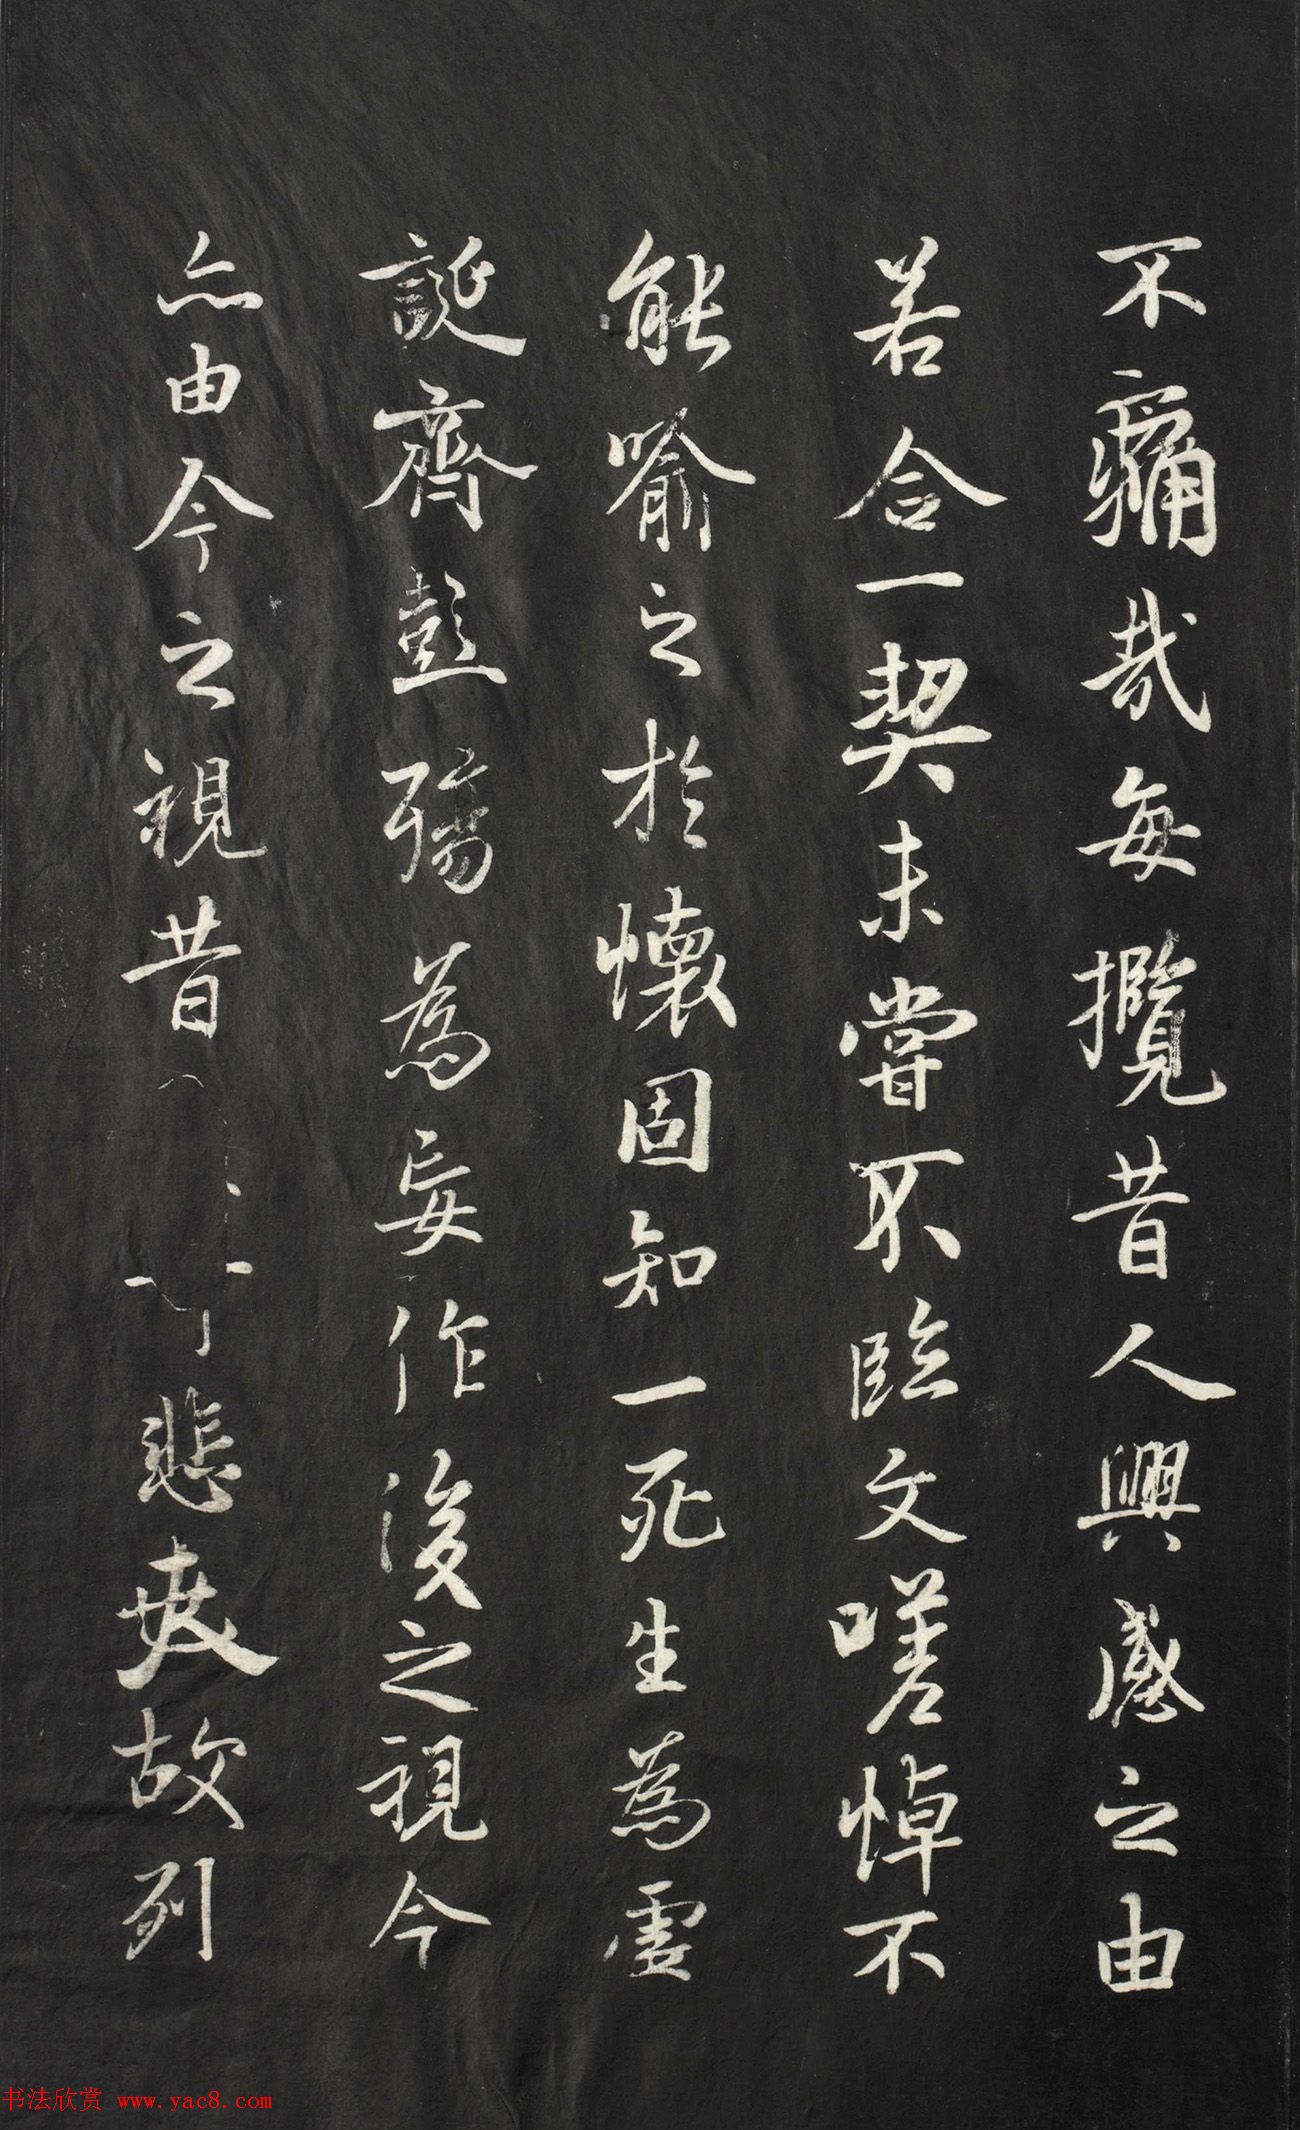 不痛哉每攬昔人興感之由
若合一契未嘗不臨文嗟悼不
能喻之於懷固知一死生為虛
誕齊彭殤為妄作後之視今
亦由今之視昔 悲夫故列
书法欣赏 www.yac8.com